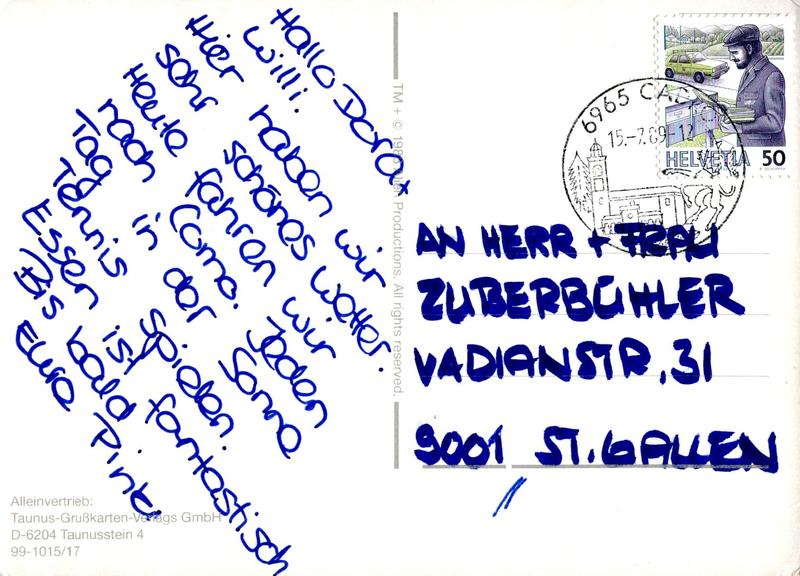 Hallo Dora +
Willi.
Hier haben wir
sehr schönes Wetter.
Heute fahren wir
nach Como. Jeden
Tag in der Sonne
Tennis spielen.
Essen ist fantastisch
Bis bald
Eure Pinki
Alleinvertrieb:
Taunus-Grußkarten-Verlags GmbH
D-6204 Taunusstein 4
99-1015/17
Productions. All rights reserved.
6965
15.-7.89-12
HELVETIA 50
AN HERR + FRAU
ZUBERBÜHLER
VADIANSTR. 31
9001 ST. GALLEN